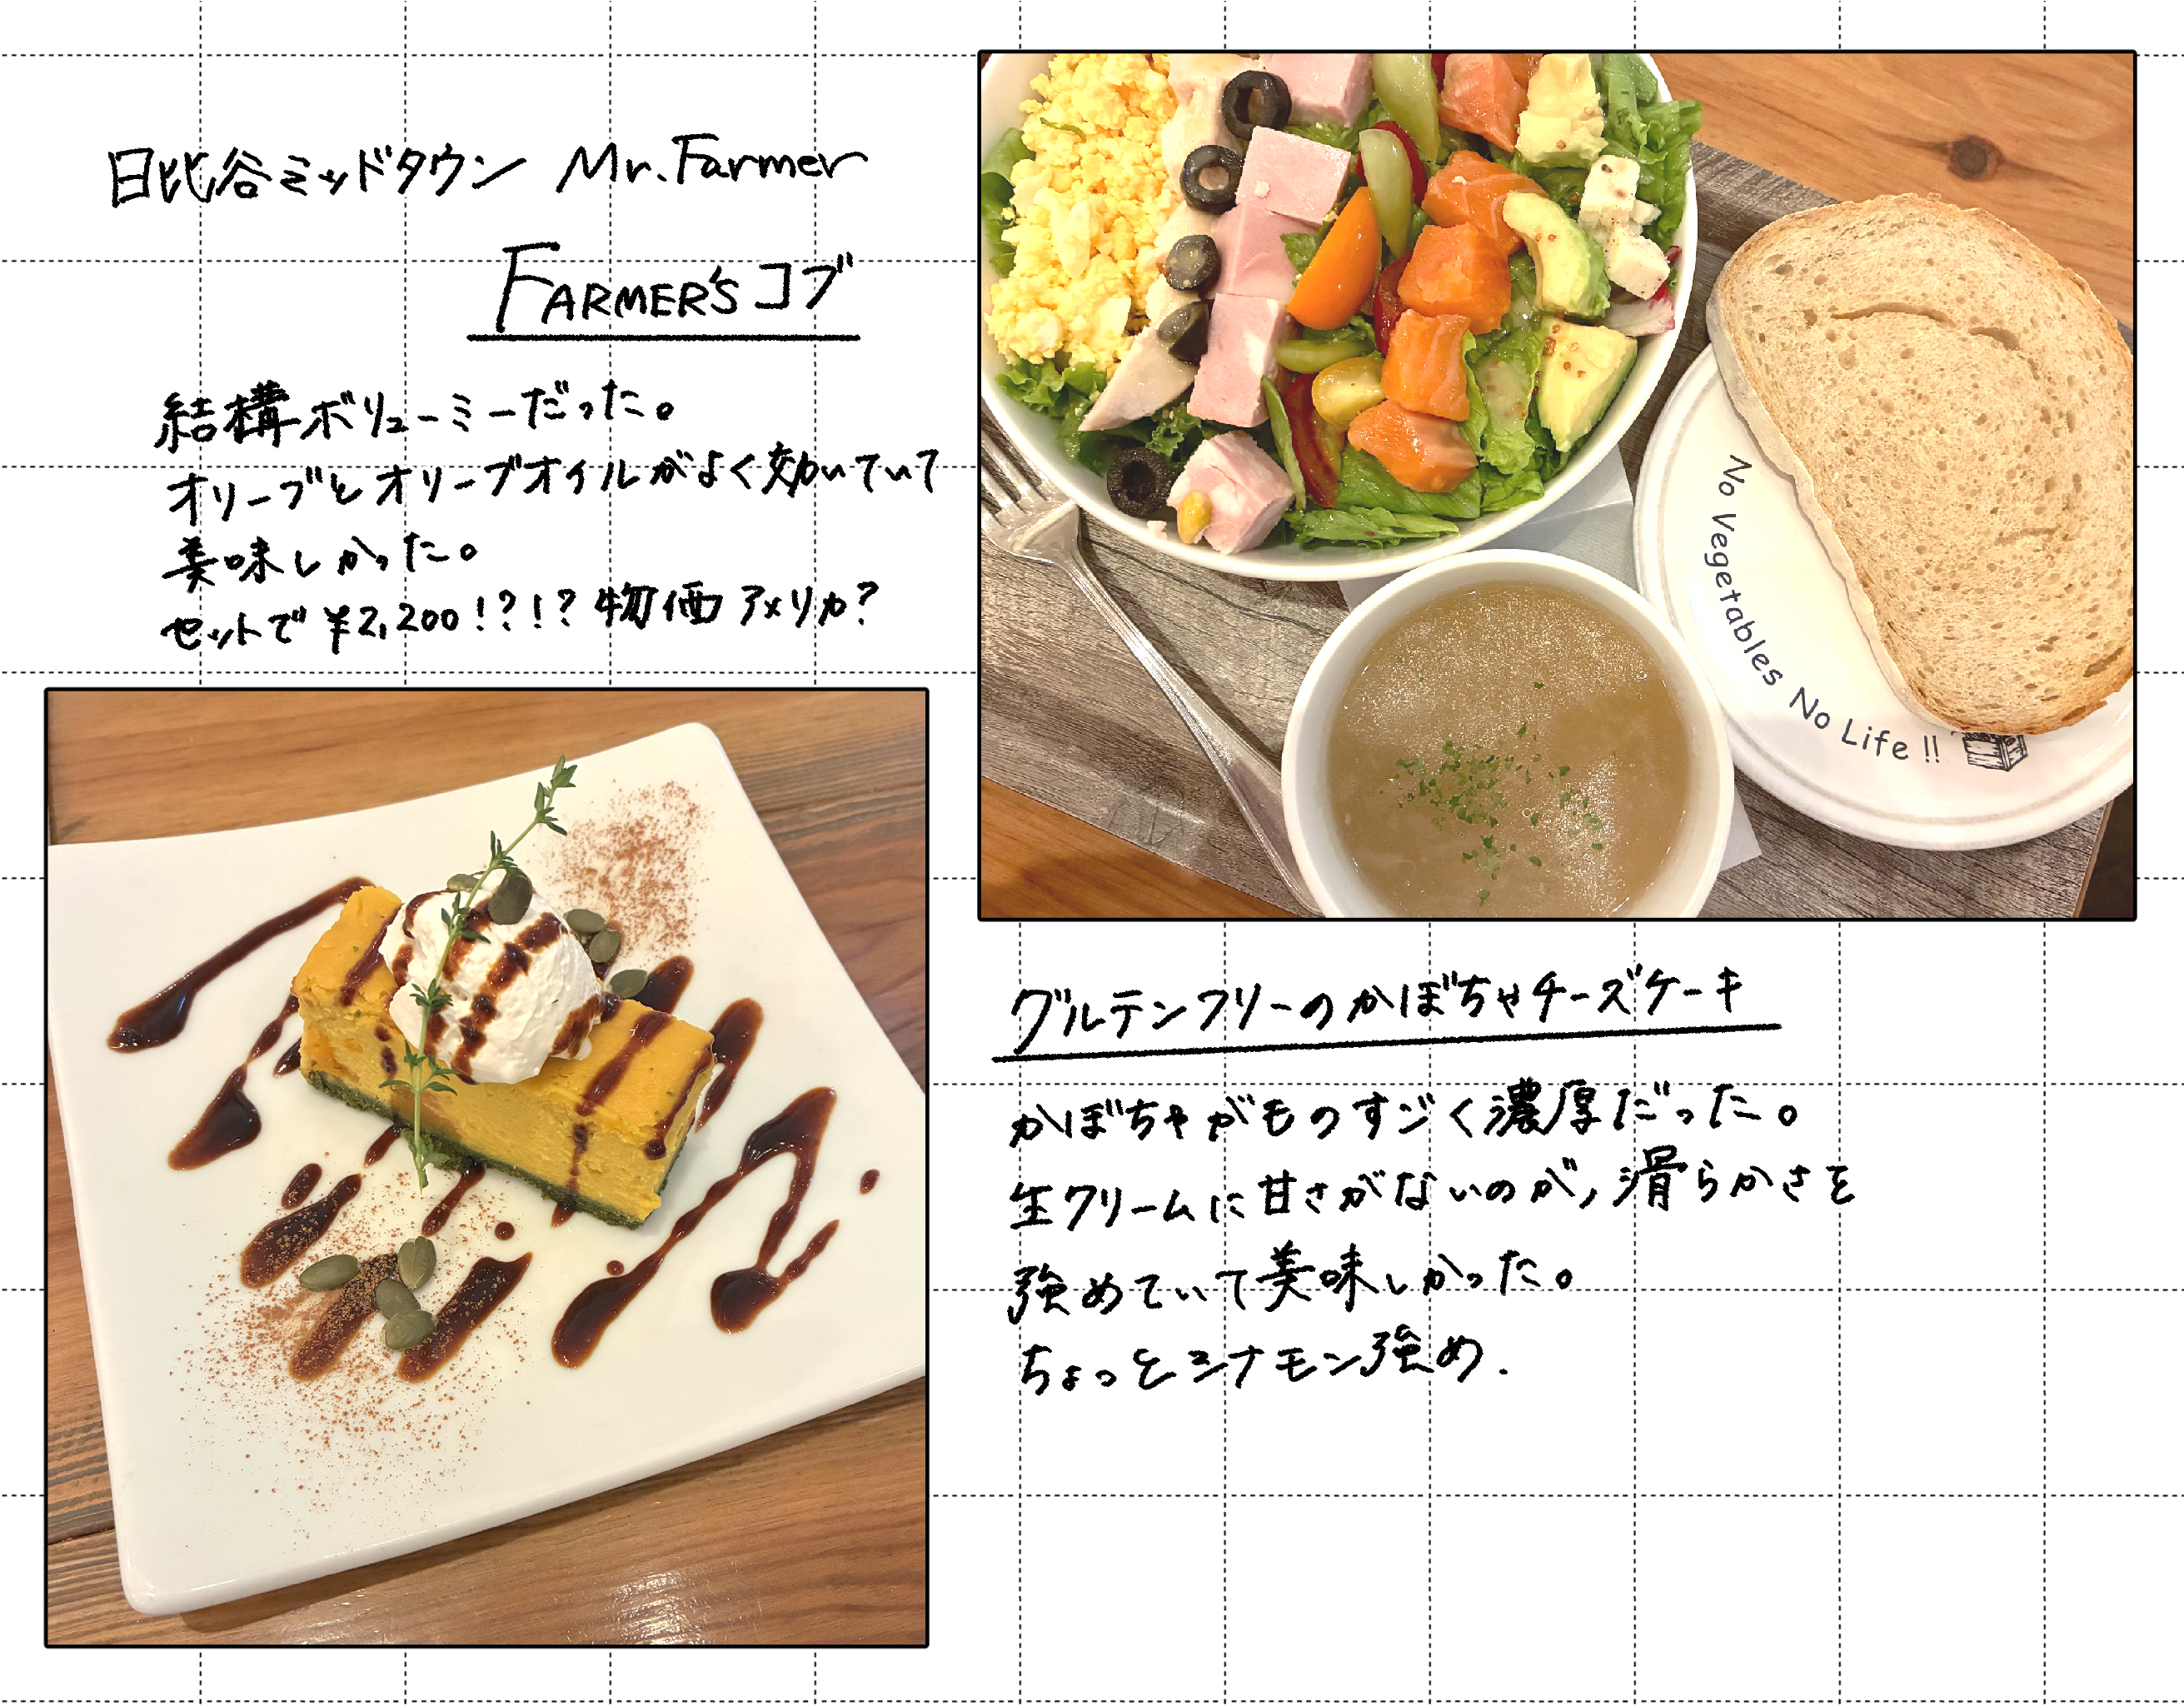 日比谷ミッドタウン Mr.Farmer
FARMER'S コブ
結構ボリューミーだった。
オリーブとオリーブオイルがよく効いていて
美味しかった。
セットで ¥2,200!?!? 物価アメリカ?
No Vegetables No Life !!
グルテンフリーのかぼちゃチーズケーキ
かぼちゃがものすごく濃厚だった。
生クリームに甘さがないのが、滑らかさを
強めていて美味しかった。
ちょっとシナモン強め.